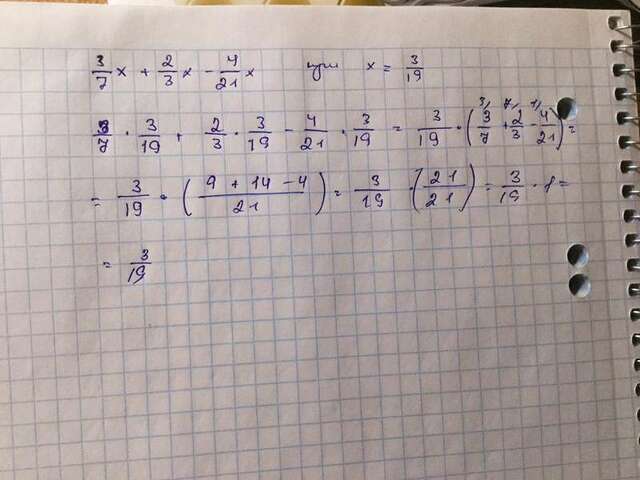 3/7 x + 2/3 x - 4/21 x при x = 3/19
3/7 · 3/19 + 2/3 · 3/19 - 4/21 · 3/19 = 3/19 · (3/7 + 2/3 - 4/21) =
= 3/19 · ((9 + 14 - 4)/21) = 3/19 · (21/21) = 3/19 · 1 =
= 3/19